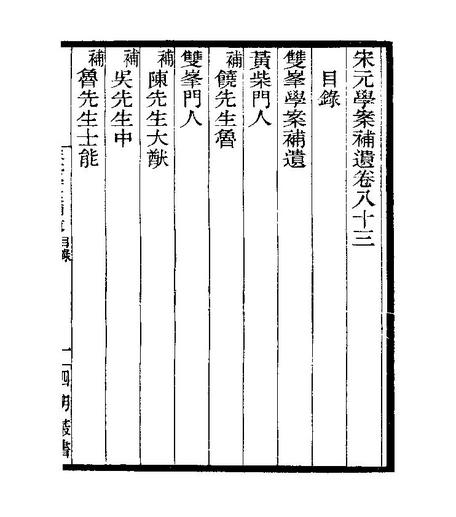 宋元學案補遺卷八十三
目錄
雙峯學案補遺
黃柴門人
補饒先生魯
雙峯門人
補陳先生大猷
補吴先生中
補魯先生士能
目錄
四明叢書